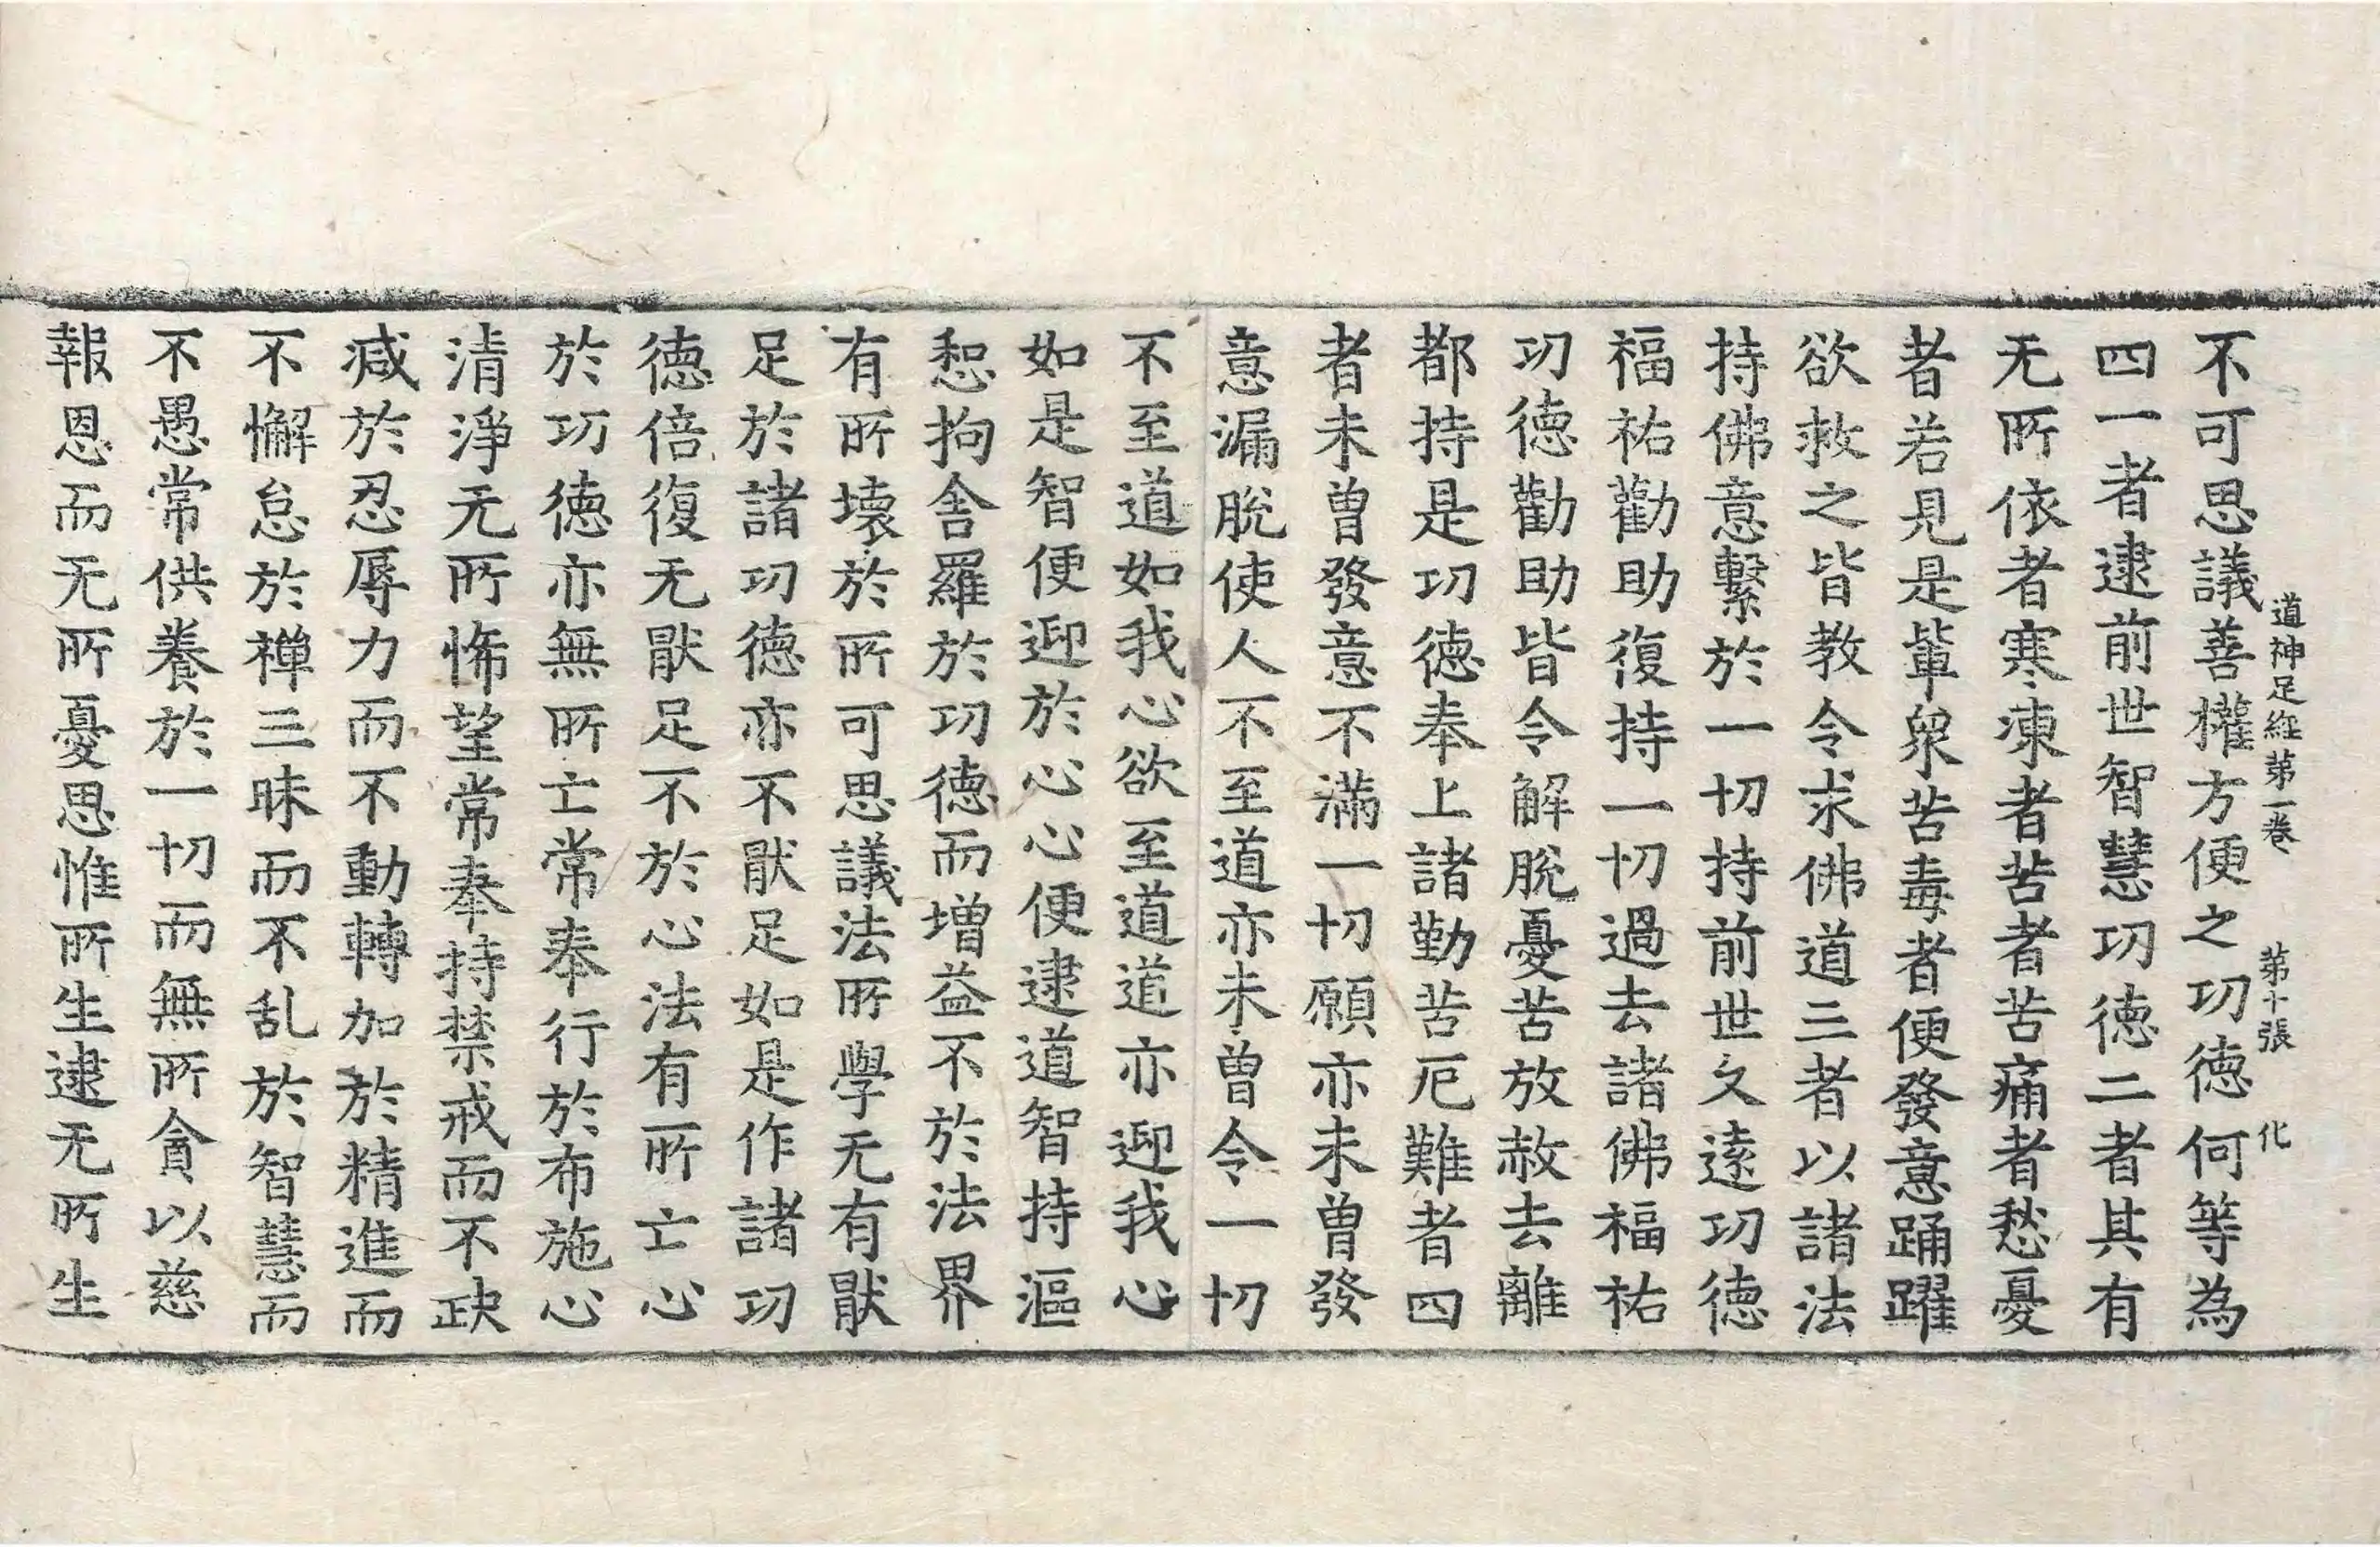 道神足經第一卷 第十張 化
不可思議善權方便之功德何等為
四一者逮前世智慧功德二者其有
无所依者寒凍者苦者苦痛者愁憂
者若見是輩衆苦毒者便發意踊躍
欲救之皆教令求佛道三者以諸法
持佛意繫於一切持前世久遠功德
福祐勸助復持一切過去諸佛福祐
功德勸助皆令解脫憂苦放赦去離
都持是功德奉上諸勤苦厄難者四
者未曾發意不滿一切願亦未曾發
意漏脫使人不至道亦未曾令一切
不至道如我心欲至道道亦迎我心
如是智便迎於心心便逮道智持漚
惒拘舍羅於功德而增益不於法界
有所壞於所可思議法所學无有猒
足於諸功德亦不猒足如是作諸功
德倍復无猒足不於心法有所亡心
於功德亦無所亡常奉行於布施心
清淨无所悕望常奉持禁戒而不缺
減於忍辱力而不動轉加於精進而
不懈怠於禪三昧而不乱於智慧而
不愚常供養於一切而無所貪以慈
報恩而无所憂思惟所生逮无所生